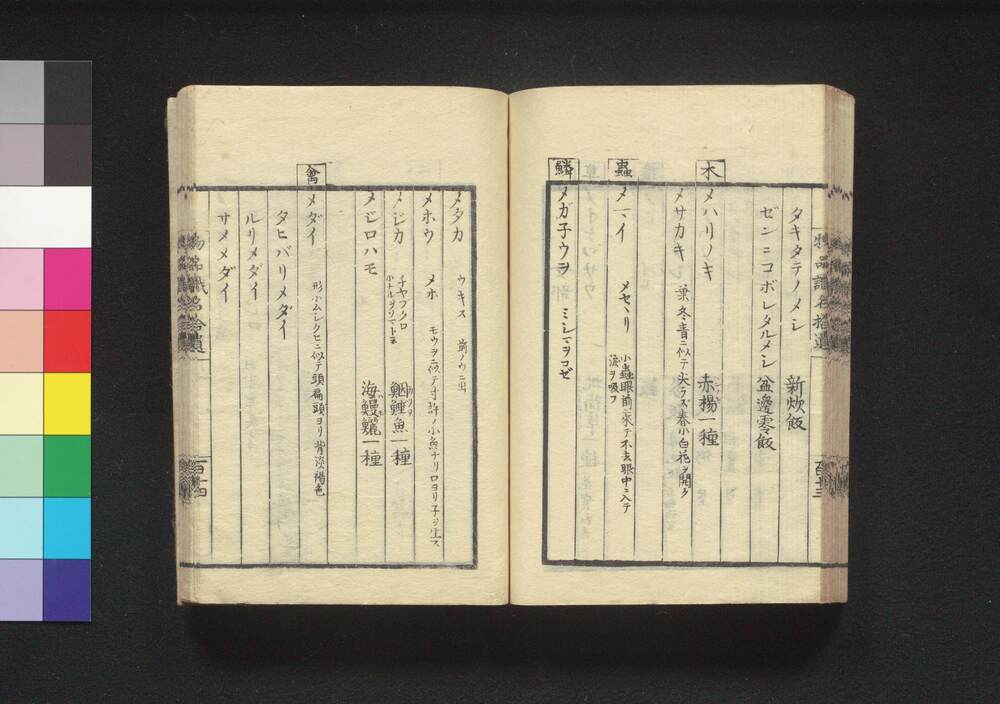 物品識名拾遺
百十三
タキタテノメシ 新炊飯
ゼンニコボレタルメシ 盆邊零飯
木
メハリノキ 赤楊一種
メサカキ 葉冬青ニ似テ尖ラズ春小白花ヲ開ク
蟲
メマイ メセヽリ 小蟲眼前ニ來テ不去眼中ニ入テ
涙ヲ吸フ
鱗
メガ子ウヲ ミシマヲコゼ
メダカ ウキス
メホウ メホ モウヲニ似テ寸許ノ小魚ナリ口ヨリ子ヲ生ス
メジカ チヤブクロ 鮂鯉魚一種
メジロハモ 海鰻鱺一種
禽
メダイ 形小ムシクヒニ似テ頭扁頭ヨリ背淡褐色
タヒバリメダイ
ルリメダイ
サメメダイ
物品識名拾遺
百十四